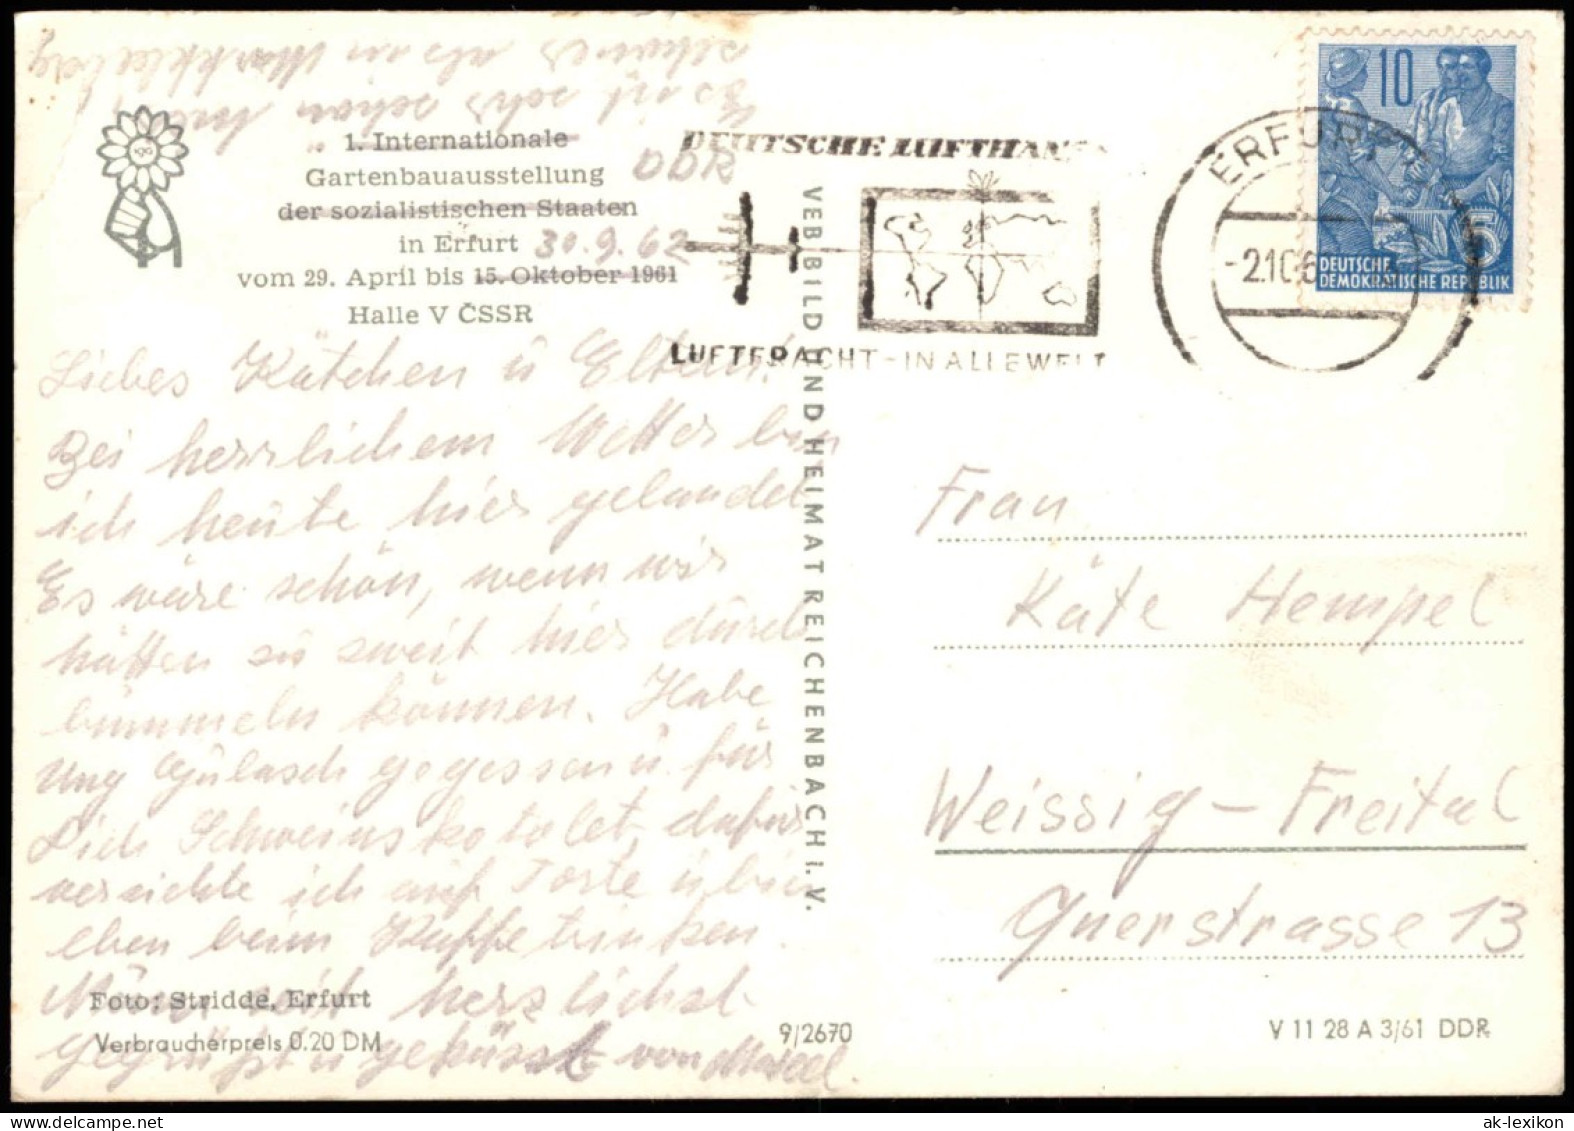 Es ist sehr schön und
schöner als in Markkleeberg
1. Internationale
Gartenbauausstellung DDR
der sozialistischen Staaten
in Erfurt 30.9.62
vom 29. April bis 15. Oktober 1961
Halle V ČSSR
Liebes Kätchen u Eltern!
Bei herrlichem Wetter bin
ich heute hier gelandet
Es wäre schön, wenn wir
hätten so zweit hier durch
bummeln können. Habe
Ung Gulasch gegessen u. für
Dich Schweinskotelet, dafür
verzichte ich auf Torte u bin
eben beim Kaffe trinken.
herzlichst
gegrüßt u geküsst von
Foto: Stridde, Erfurt
Verbraucherpreis 0.20 DM
VEB BILD UND HEIMAT REICHENBACH I. V.
9/2670
DEUTSCHE LUFTHANSA
LUFTFRACHT - IN ALLE WELT
ERFURT
-2.10.6
10
5
DEUTSCHE
DEMOKRATISCHE REPUBLIK
Frau
Käte Hempel
Weissig - Freital
Querstrasse 13
V 11 28 A 3/61 DDR
ak-lexikon